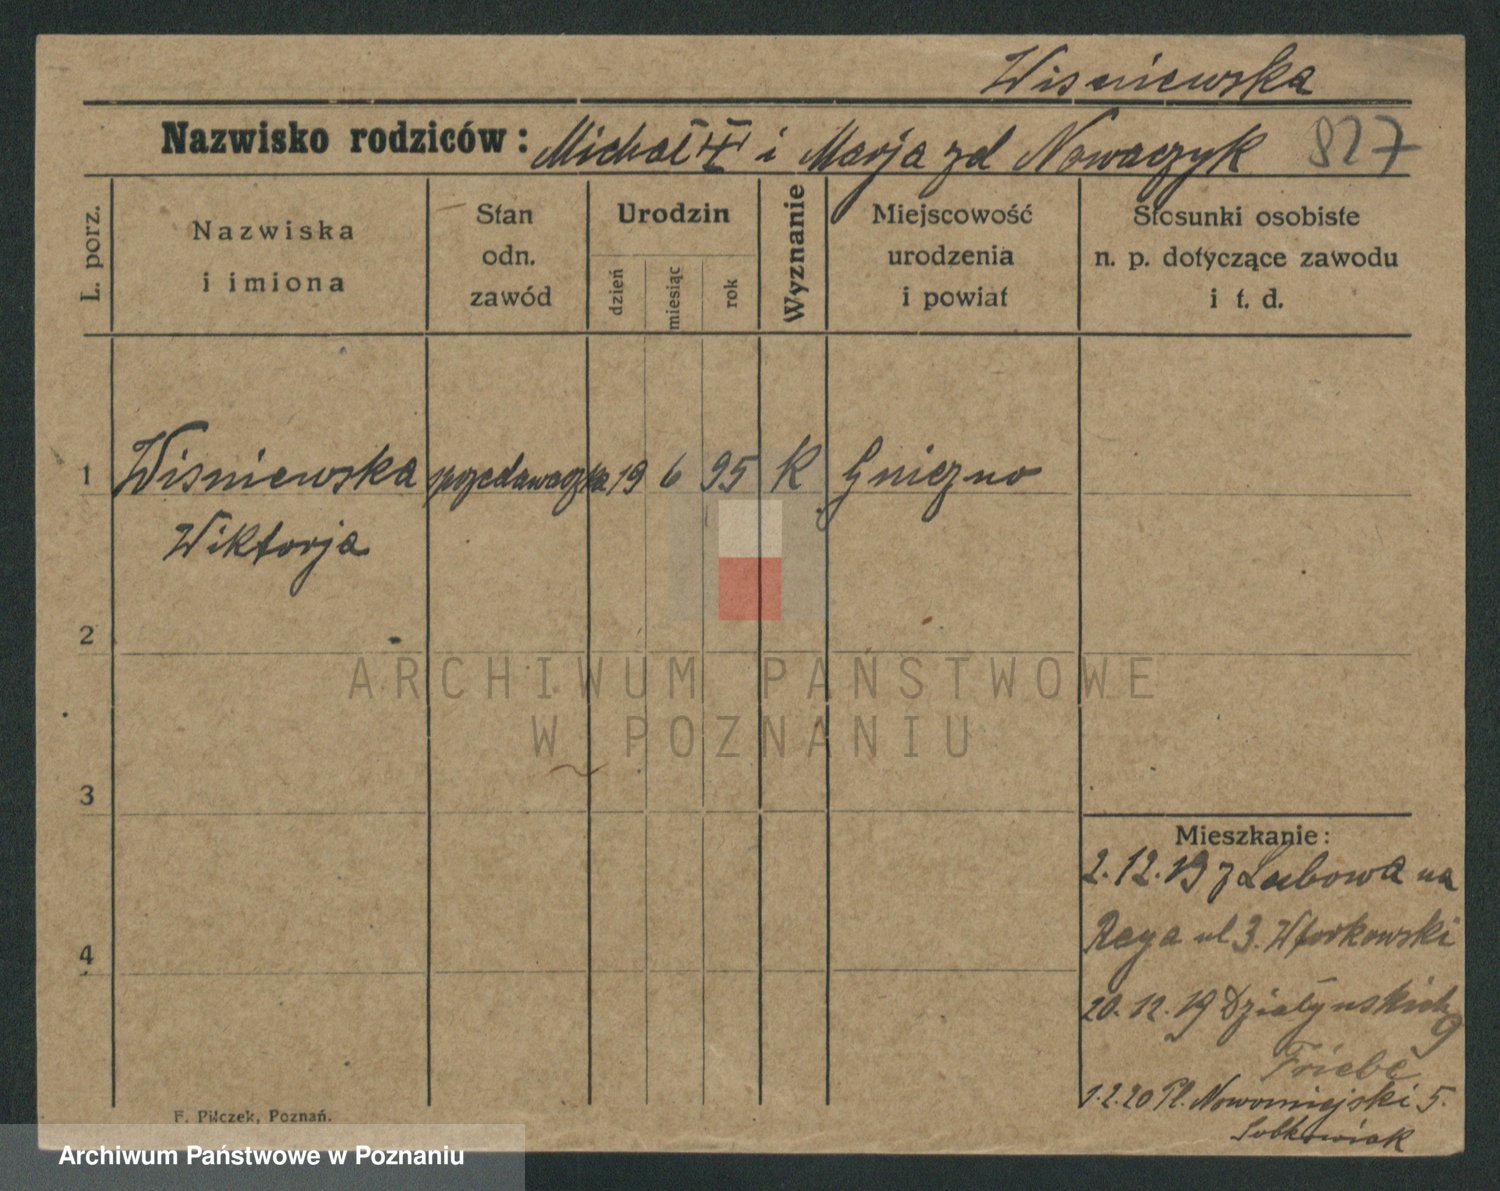 Wisniewska
Nazwisko rodziców: Michał i Marja zd Nowaczyk 827
L. porz.
Nazwiska
i imiona
Stan
odn.
zawód
Urodzin
dzień
miesiąc
rok
Wyznanie
Miejscowość
urodzenia
i powiat
Stosunki osobiste
n. p. dotyczące zawodu
i t. d.
1 Wisniewska 19 6 95 K Gniezno
Wiktorja
2
3
4
Mieszkanie:
2.12.19 z Lubowa na
Reya ul 3. Wtorkowski
20.12.19 Działynskich 9
Friebe
1.2.20 Pl. Nowomiejski 5.
Sobkowiak
F. Pilczek, Poznań.
ARCHIWUM PAŃSTWOWE
W POZNANIU
Archiwum Państwowe w Poznaniu